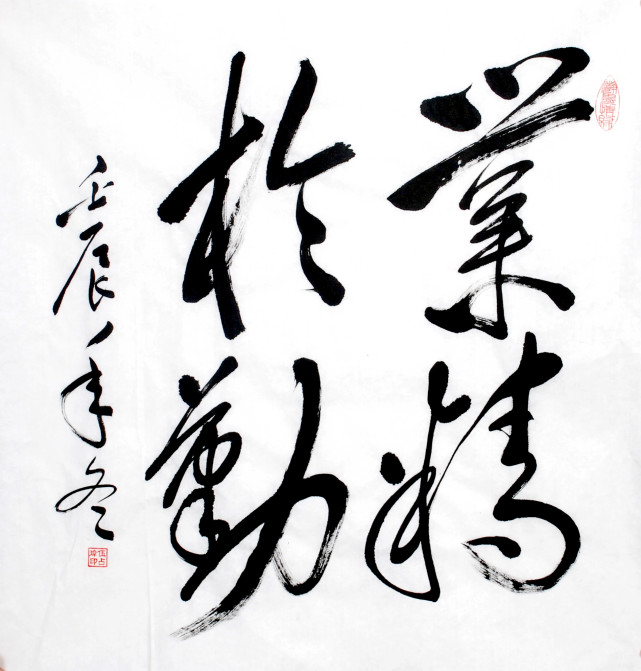 業精
於勤
壬辰年冬